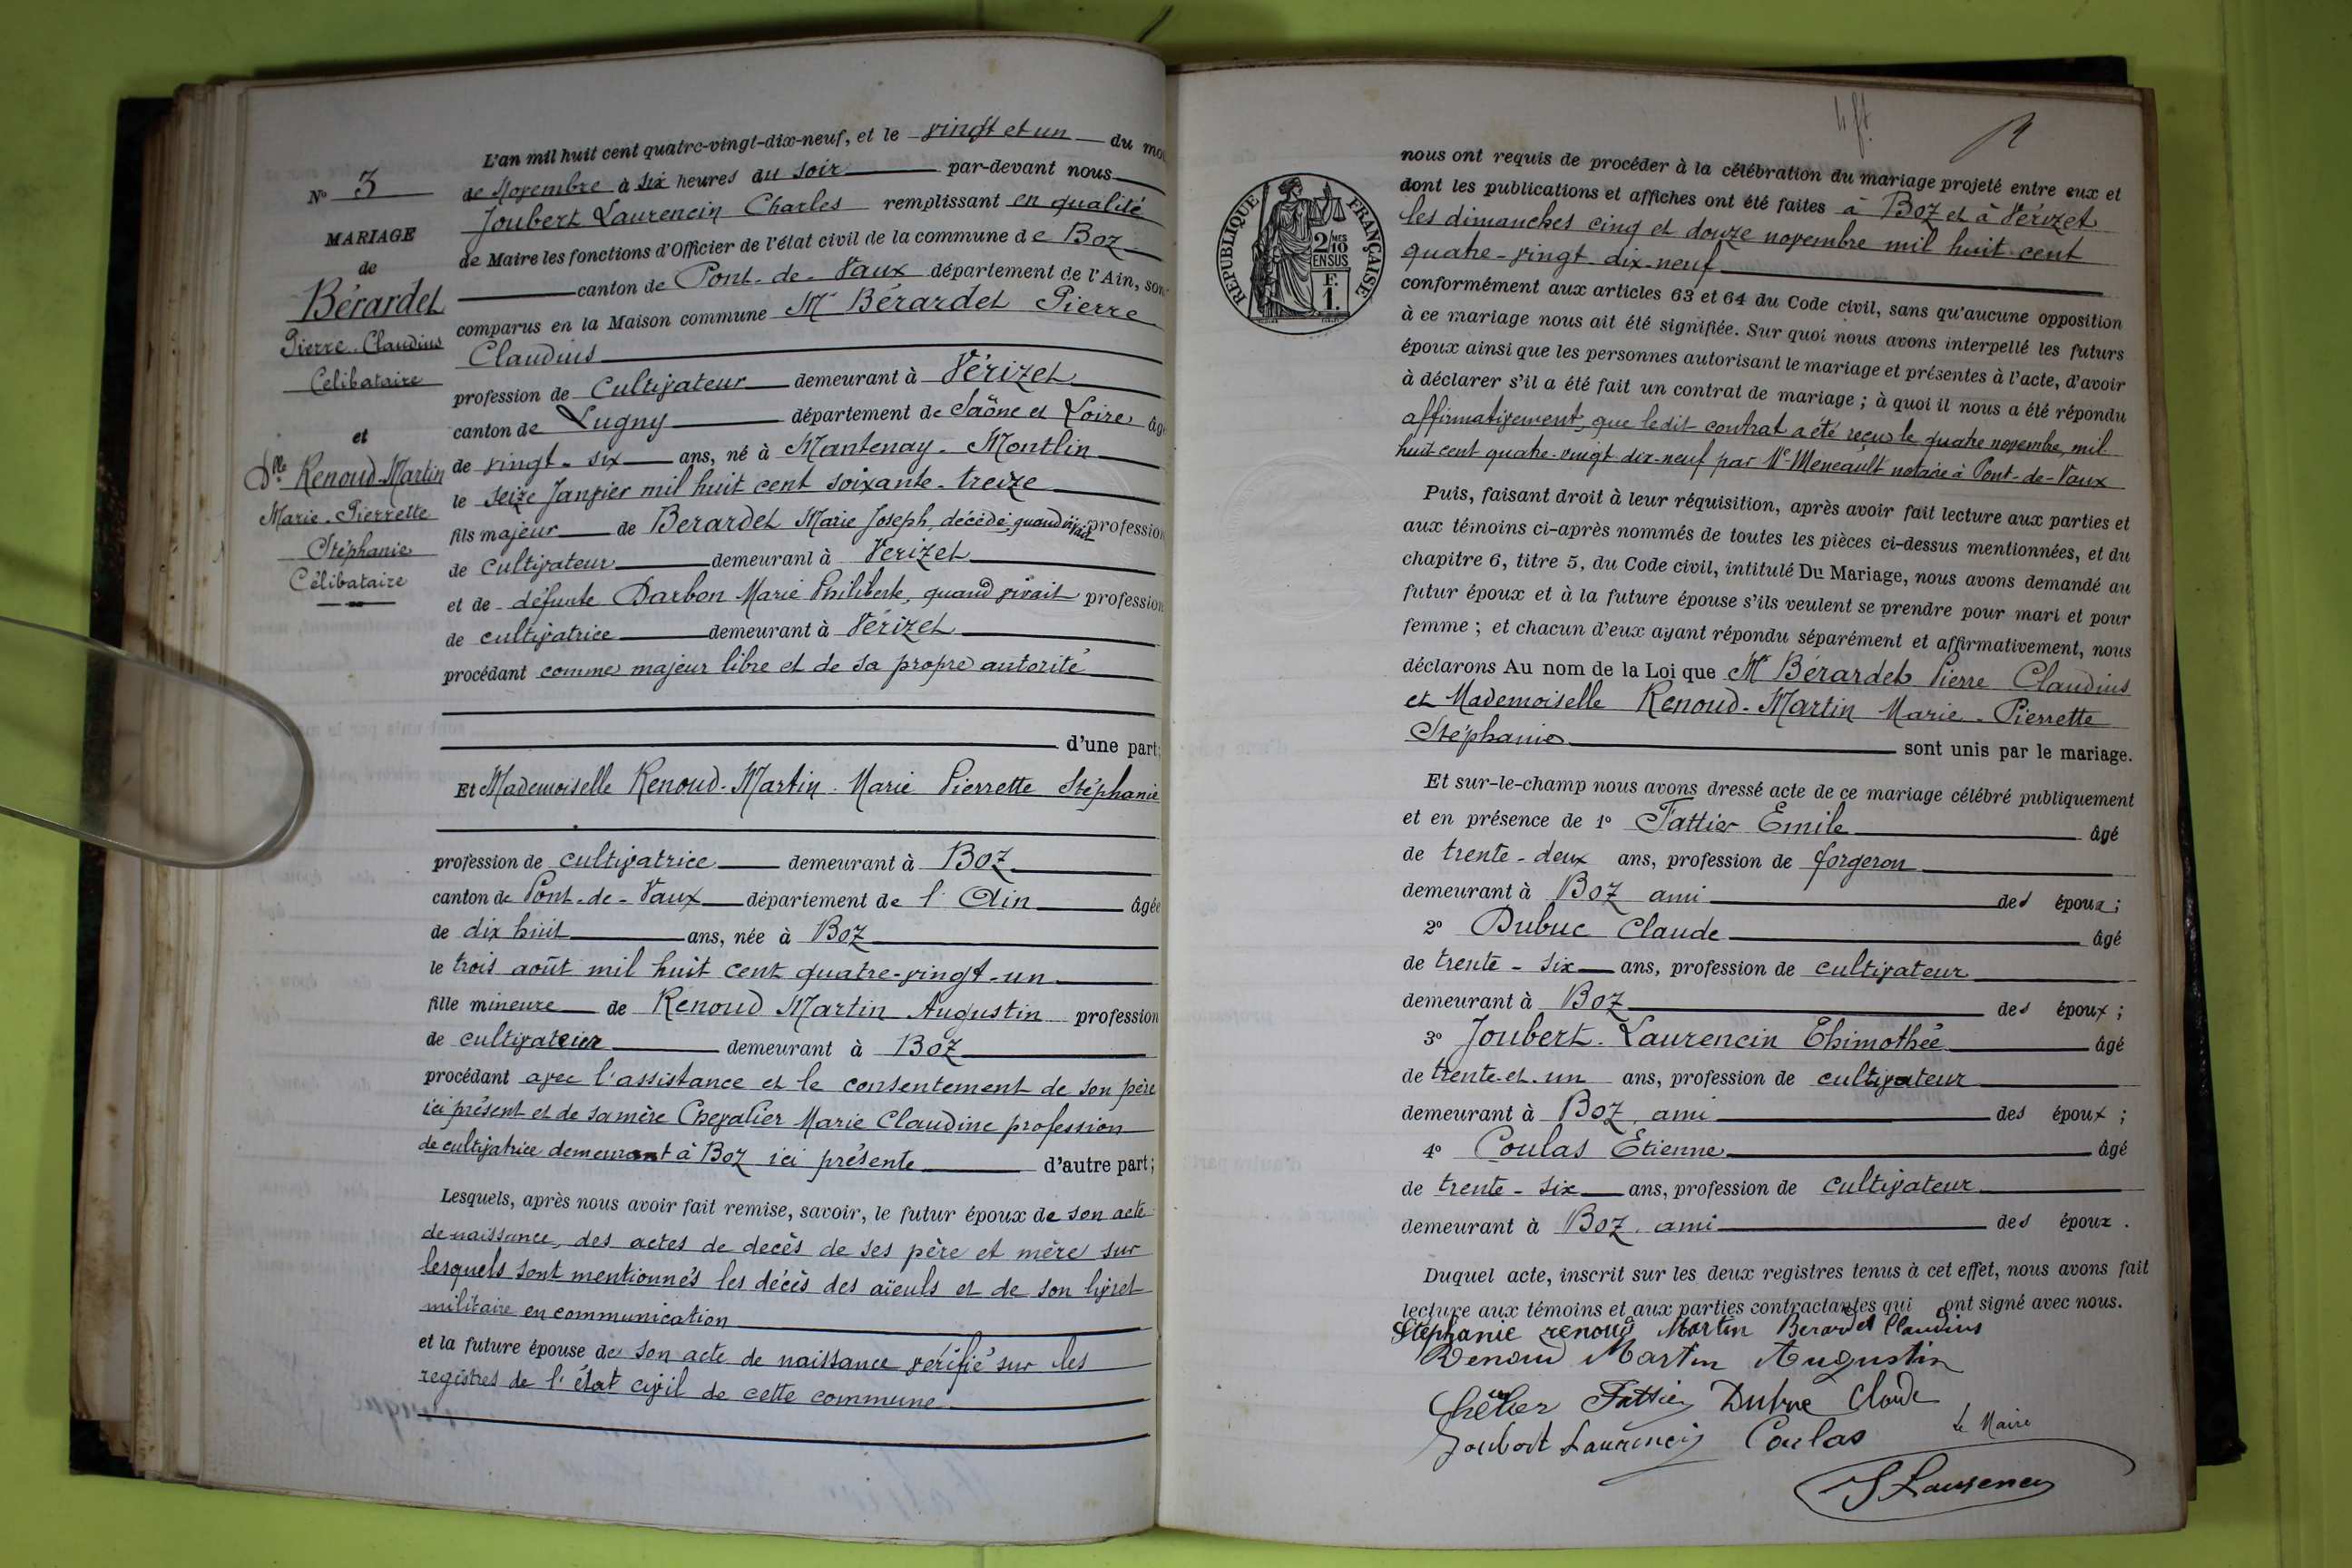 N° 3
MARIAGE
de
Bérardet
Pierre-Claudius
Célibataire
et
Dlle Renoud-Martin
Marie-Pierrette
Stéphanie
Célibataire
L'an mil huit cent quatre-vingt-dix-neuf, et le vingt et un du moi
de Novembre à six heures du soir par-devant nous
Joubert Laurencin Charles remplissant en qualité
de Maire les fonctions d'Officier de l'état civil de la commune de Boz
canton de Pont-de-Vaux département de l'Ain, son
comparus en la Maison commune Mr Bérardet Pierre
Claudius
profession de Cultivateur demeurant à Vérizet
canton de Lugny département de Saône et Loire âg
de vingt-six ans, né à Mantenay-Montlin
le seize Janvier mil huit cent soixante-treize
fils majeur de Berardet Marie Joseph, décédé, quand vivait profession
de cultivateur demeurant à Verizet
et de défunte Darbon Marie Philiberte, quand vivait profession
de cultivatrice demeurant à Vérizet
procédant comme majeur libre et de sa propre autorité
d'une part;
Et Mademoiselle Renoud-Martin-Marie Pierrette Stéphanie
profession de cultivatrice demeurant à Boz
canton de Pont-de-Vaux département de l'Ain âgée
de dix huit ans, née à Boz
le trois août mil huit cent quatre-vingt-un
fille mineure de Renoud Martin Augustin profession
de cultivateur demeurant à Boz
procédant avec l'assistance et le consentement de son père
ici présent et de sa mère Chevalier Marie Claudine profession
de cultivatrice demeurant à Boz ici présente d'autre part;
Lesquels, après nous avoir fait remise, savoir, le futur époux de son acte
de naissance, des actes de decès de ses père et mère sur
lesquels sont mentionnés les décès des aïeuls et de son livret
militaire en communication
et la future épouse de son acte de naissance vérifié sur les
registres de l'état civil de cette commune
RÉPUBLIQUE FRANÇAISE
2/10MES
EN SUS
F.
1.
nous ont requis de procéder à la célébration du mariage projeté entre eux et
dont les publications et affiches ont été faites à Boz et à Vérizet
les dimanches cinq et douze novembre mil huit cent
quatre-vingt-dix-neuf
conformément aux articles 63 et 64 du Code civil, sans qu'aucune opposition
à ce mariage nous ait été signifiée. Sur quoi nous avons interpellé les futurs
époux ainsi que les personnes autorisant le mariage et présentes à l'acte, d'avoir
à déclarer s'il a été fait un contrat de mariage; à quoi il nous a été répondu
affirmativement, que ledit contrat a été reçu le quatre novembre, mil
huit cent quatre-vingt dix-neuf par Me Meneault notaire à Pont-de-Vaux
Puis, faisant droit à leur réquisition, après avoir fait lecture aux parties et
aux témoins ci-après nommés de toutes les pièces ci-dessus mentionnées, et du
chapitre 6, titre 5, du Code civil, intitulé Du Mariage, nous avons demandé au
futur époux et à la future épouse s'ils veulent se prendre pour mari et pour
femme; et chacun d'eux ayant répondu séparément et affirmativement, nous
déclarons Au nom de la Loi que Mr Bérardet Pierre Claudius
et Mademoiselle Renoud-Martin Marie-Pierrette
Stéphanie sont unis par le mariage.
Et sur-le-champ nous avons dressé acte de ce mariage célébré publiquement
et en présence de 1° Fattier Emile âgé
de trente-deux ans, profession de forgeron
demeurant à Boz ami des époux;
2° Dubuc Claude âgé
de trente-six ans, profession de cultivateur
demeurant à Boz des époux;
3° Joubert-Laurencin Thimothée âgé
de trente-et-un ans, profession de cultivateur
demeurant à Boz, ami des époux;
4° Coulas Etienne âgé
de trente-six ans, profession de cultivateur
demeurant à Boz ami des époux.
Duquel acte, inscrit sur les deux registres tenus à cet effet, nous avons fait
lecture aux témoins et aux parties contractantes qui ont signé avec nous.
Stephanie renoud Martin Berardet Claudius
Renoud Martin Augustin
Fattier Dubuc Claude
Joubert Laurencin Coulas Le Maire
J Laurencin